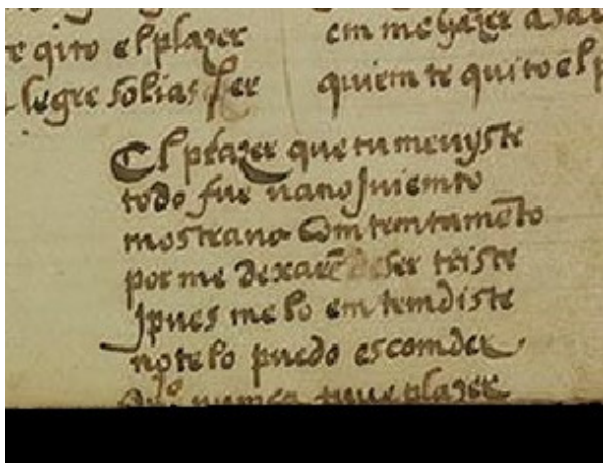 te qito el plazer
alegre solias ser
em me hazer
quiem te quito el p
El plazer que tu me viste
todo fue vano Juiemto
mostrano comtemtamēto
por me dexarē de ser triste
Jpues me lo emtemdiste
no telo puedo escomder
numca tuue plazer